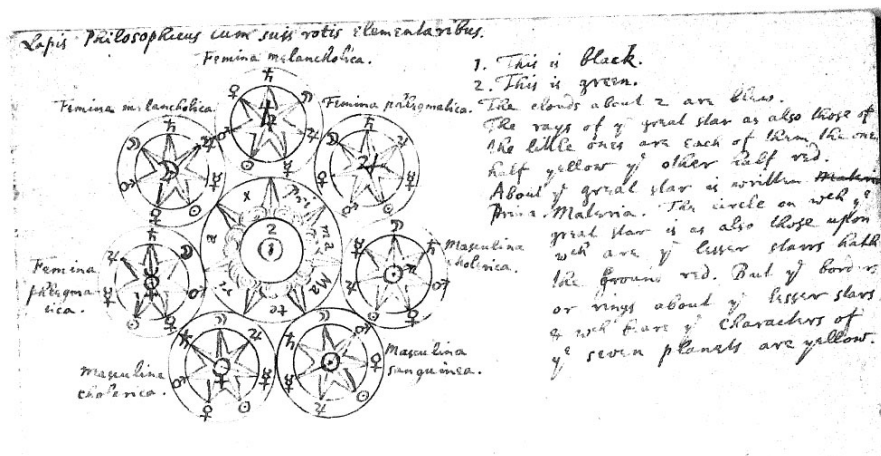 Lapis Philosophicus cum suis rotis elementaribus.
Femina melancholica.
Femina melancholica.
Femina phlegmatica.
Femina
phlegma-
tica.
Masculina
cholerica.
Masculina
cholerica.
Masculina
sanguinea.
Pri
ma
Ma
te
ri
a
x
2
1
1. This is black.
2. This is green.
The clouds about 2 are blew.
The rays of yͤ great star as also those of
the little ones are each of them the one
half yellow yͤ other half red.
About yͤ great star is written Materia
Prima Materia. The circle on wch yͤ
great star is as also those upon
wch are yͤ lesser starrs hath
the ground red. But yͤ borders
or rings about yͤ lesser stars
& wch beare yͤ characters of
yͤ seven planets are yellow.